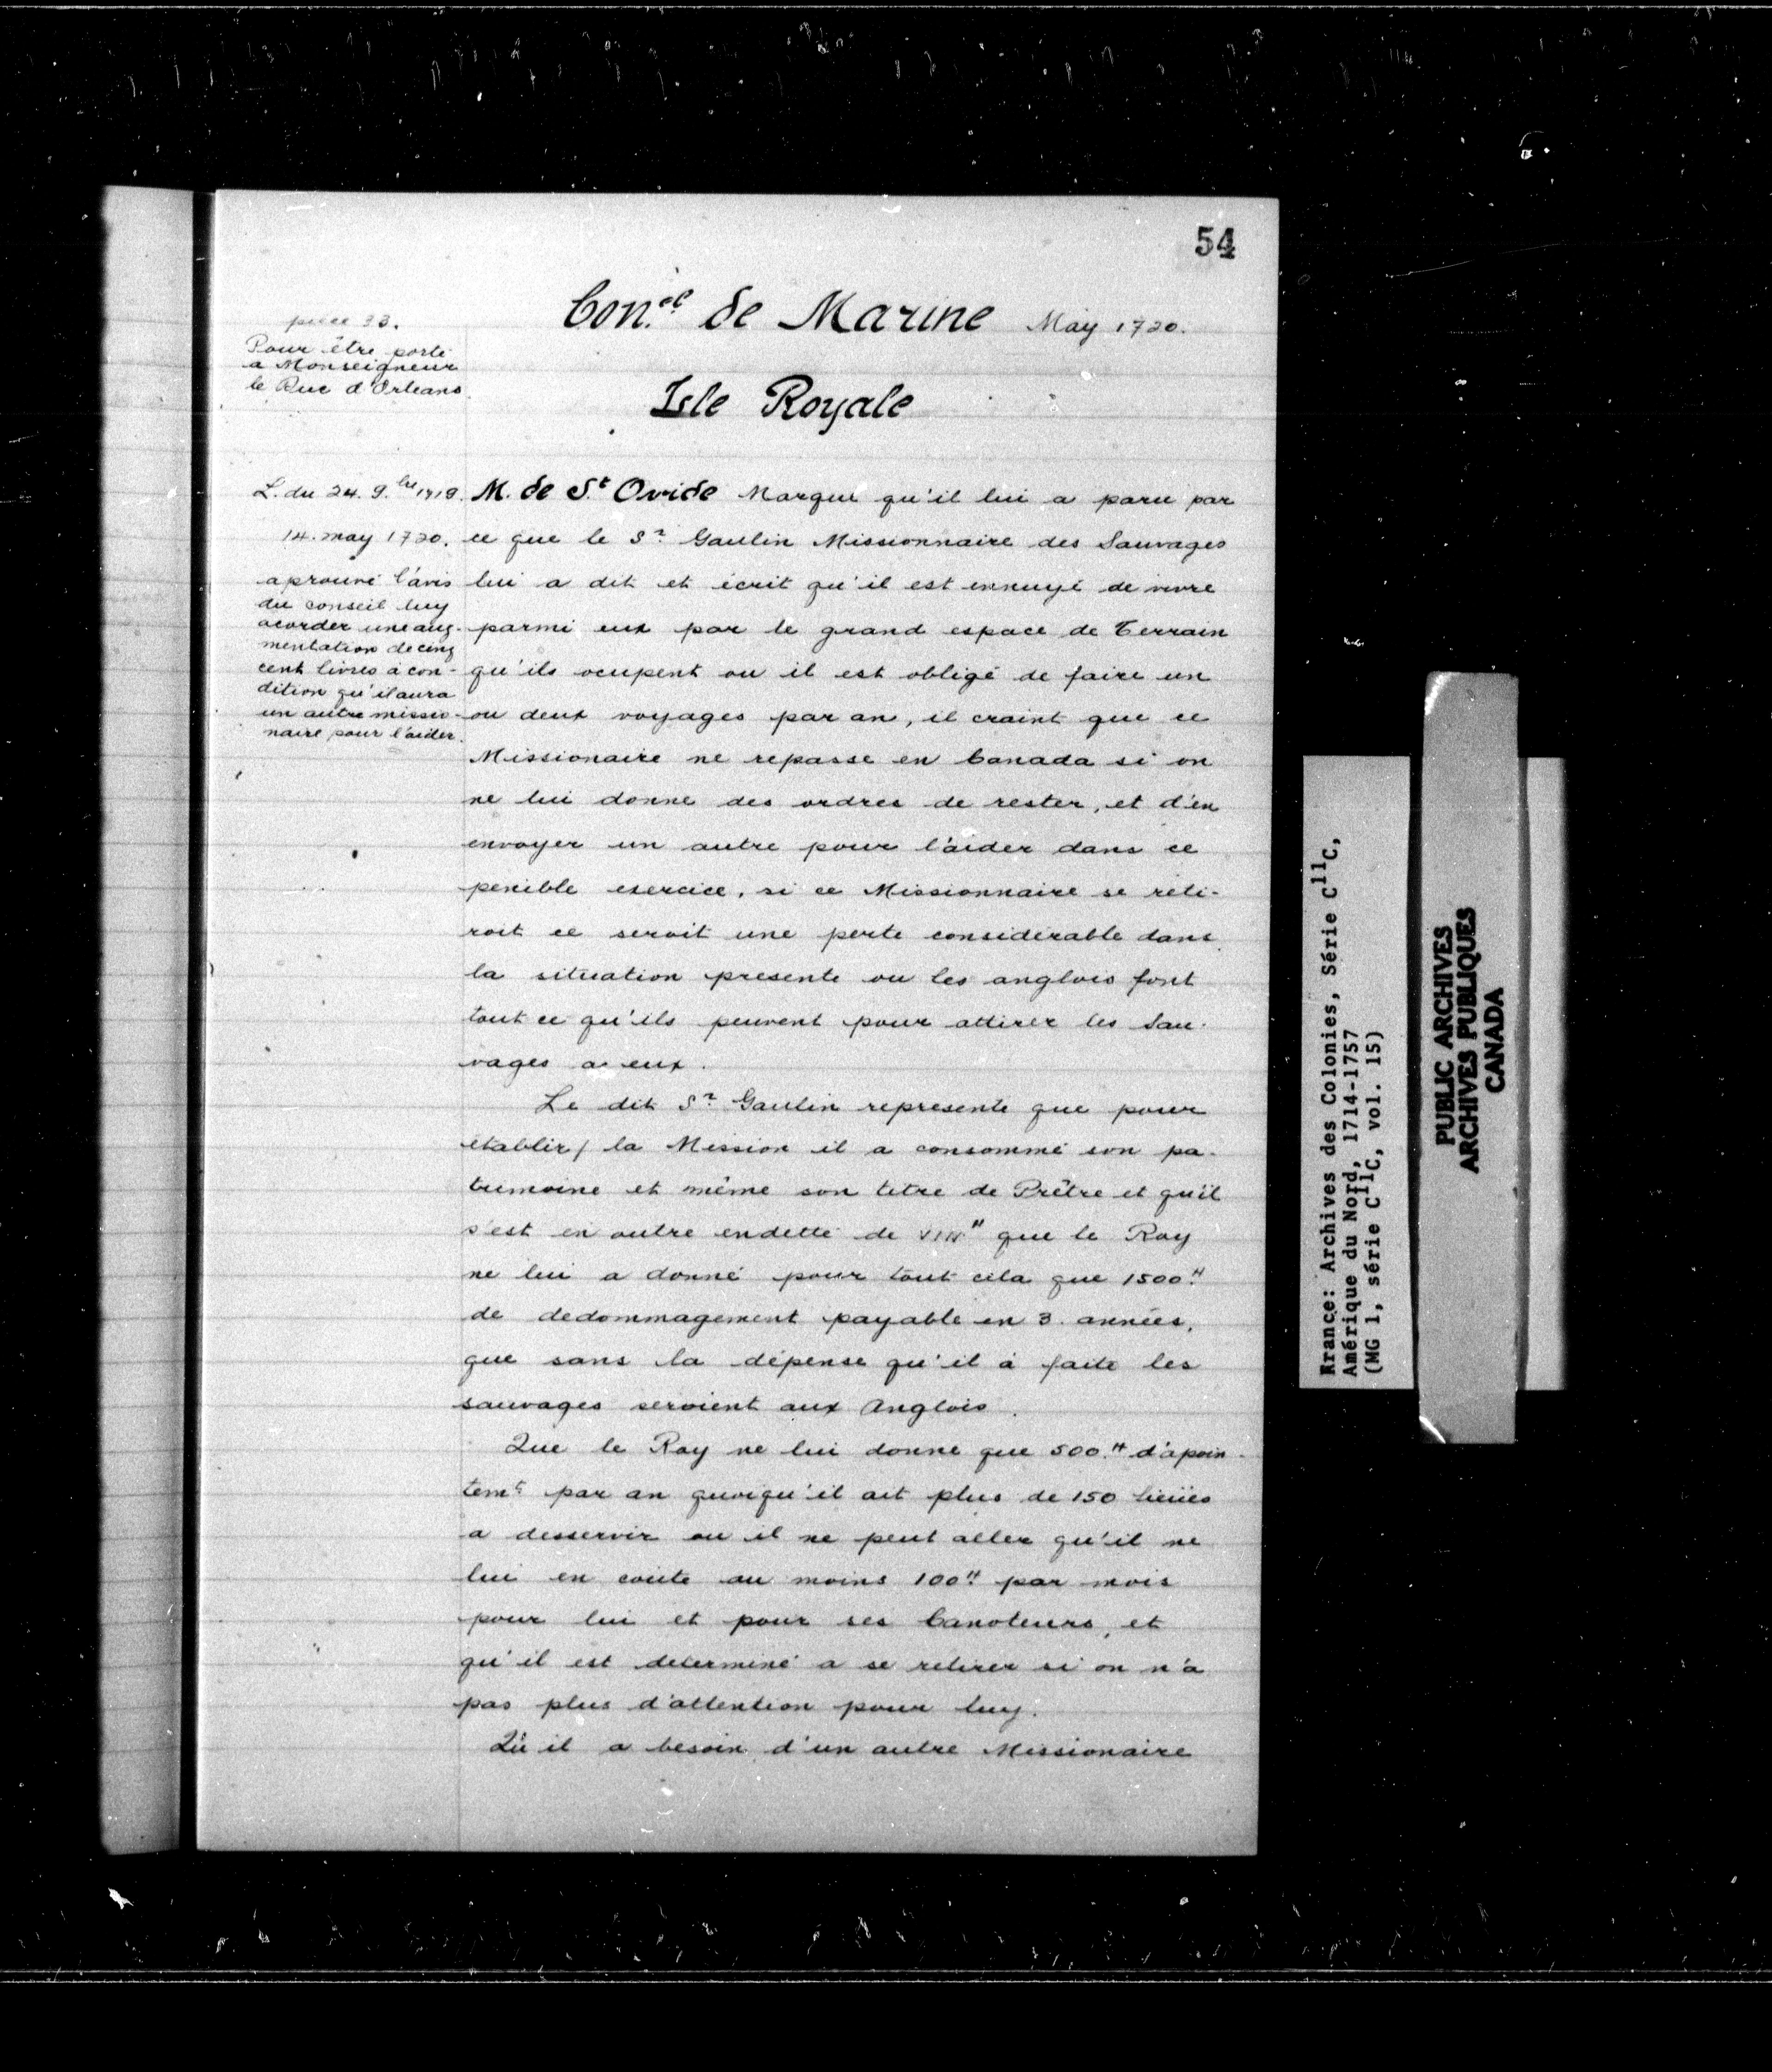 54
Con.el de Marine May 1720.
Isle Royale
piece 33.
Pour être porté
a Monseigneur
le Duc d'Orleans.
L. du 24. 9.bre 1719.
14. may 1720.
aprouvé l'avis
du conseil luy
acorder une aug-
mentation de cinq
cent livres à con-
dition qu'il aura
un autre missio-
naire pour l'aider.
M. de S.t Ovide Marque qu'il lui a paru par
ce que le S.r Gaulin Missionnaire des Sauvages
lui a dit et écrit qu'il est ennuyé de vivre
parmi eux par le grand espace de Terrain
qu'ils ocupent ou il est obligé de faire un
ou deux voyages par an, il craint que ce
Missionaire ne repasse en Canada si on
ne lui donne des ordres de rester, et d'en
envoyer un autre pour l'aider dans ce
penible exercice, si ce Missionnaire se reti-
roit ce seroit une perte considerable dans
la situation presente ou les anglois font
tout ce qu'ils peuvent pour attirer les Sau-
vages a eux.
Le dit S.r Gaulin represente que pour
etablir la Mission il a consommé son pa-
trimoine et même son titre de Prêtre et qu'il
s'est en outre endetté de que le Roy
ne lui a donné pour tout cela que 1500.#
de dedommagement payable en 3. années,
que sans la dépense qu'il à faite les
sauvages seroient aux Anglois.
Que le Roy ne lui donne que 500.# d'apoin-
tem.t par an quoiqu'il ait plus de 150 lieües
a desservir ou il ne peut aller qu'il ne
lui en coute au moins 100.# par mois
pour lui et pour ses Canoteurs, et
qu'il est determiné a se retirer si on n'a
pas plus d'attention pour luy.
Qu'il a besoin d'un autre Missionaire
France: Archives des Colonies, Série C11C,
Amérique du Nord, 1714-1757
(MG 1, série C11C, vol. 15)
PUBLIC ARCHIVES
ARCHIVES PUBLIQUES
CANADA